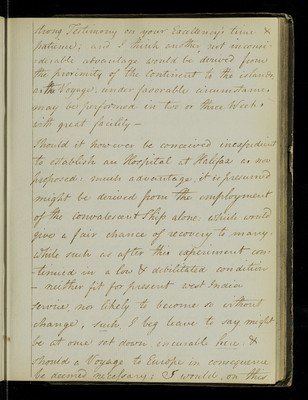 strong Testimony on your Excellency's time &
patience; and I think another, not inconsi-
-derable advantage would be derived from
the proximity of the Continent to the islands
as the Voyage, under favorable circumstances
may be performed in two or three Weeks,
with great facility —
Should it however be conceived inexpedient
to establish an Hospital at Halifax as now
proposed: much advantage, it is presumed
might be derived from the employment
of the Convalescent Ship alone, which would
give a fair chance of recovery to many.
While such as after this experiment con
-tinued in a low & debilitated condition
- neither fit for present West India
service, nor likely to become so without
change, such, I beg leave to say might
be at once set down incurable here &
should a Voyage to Europe in consequence
be deemed necessary; I would, on this